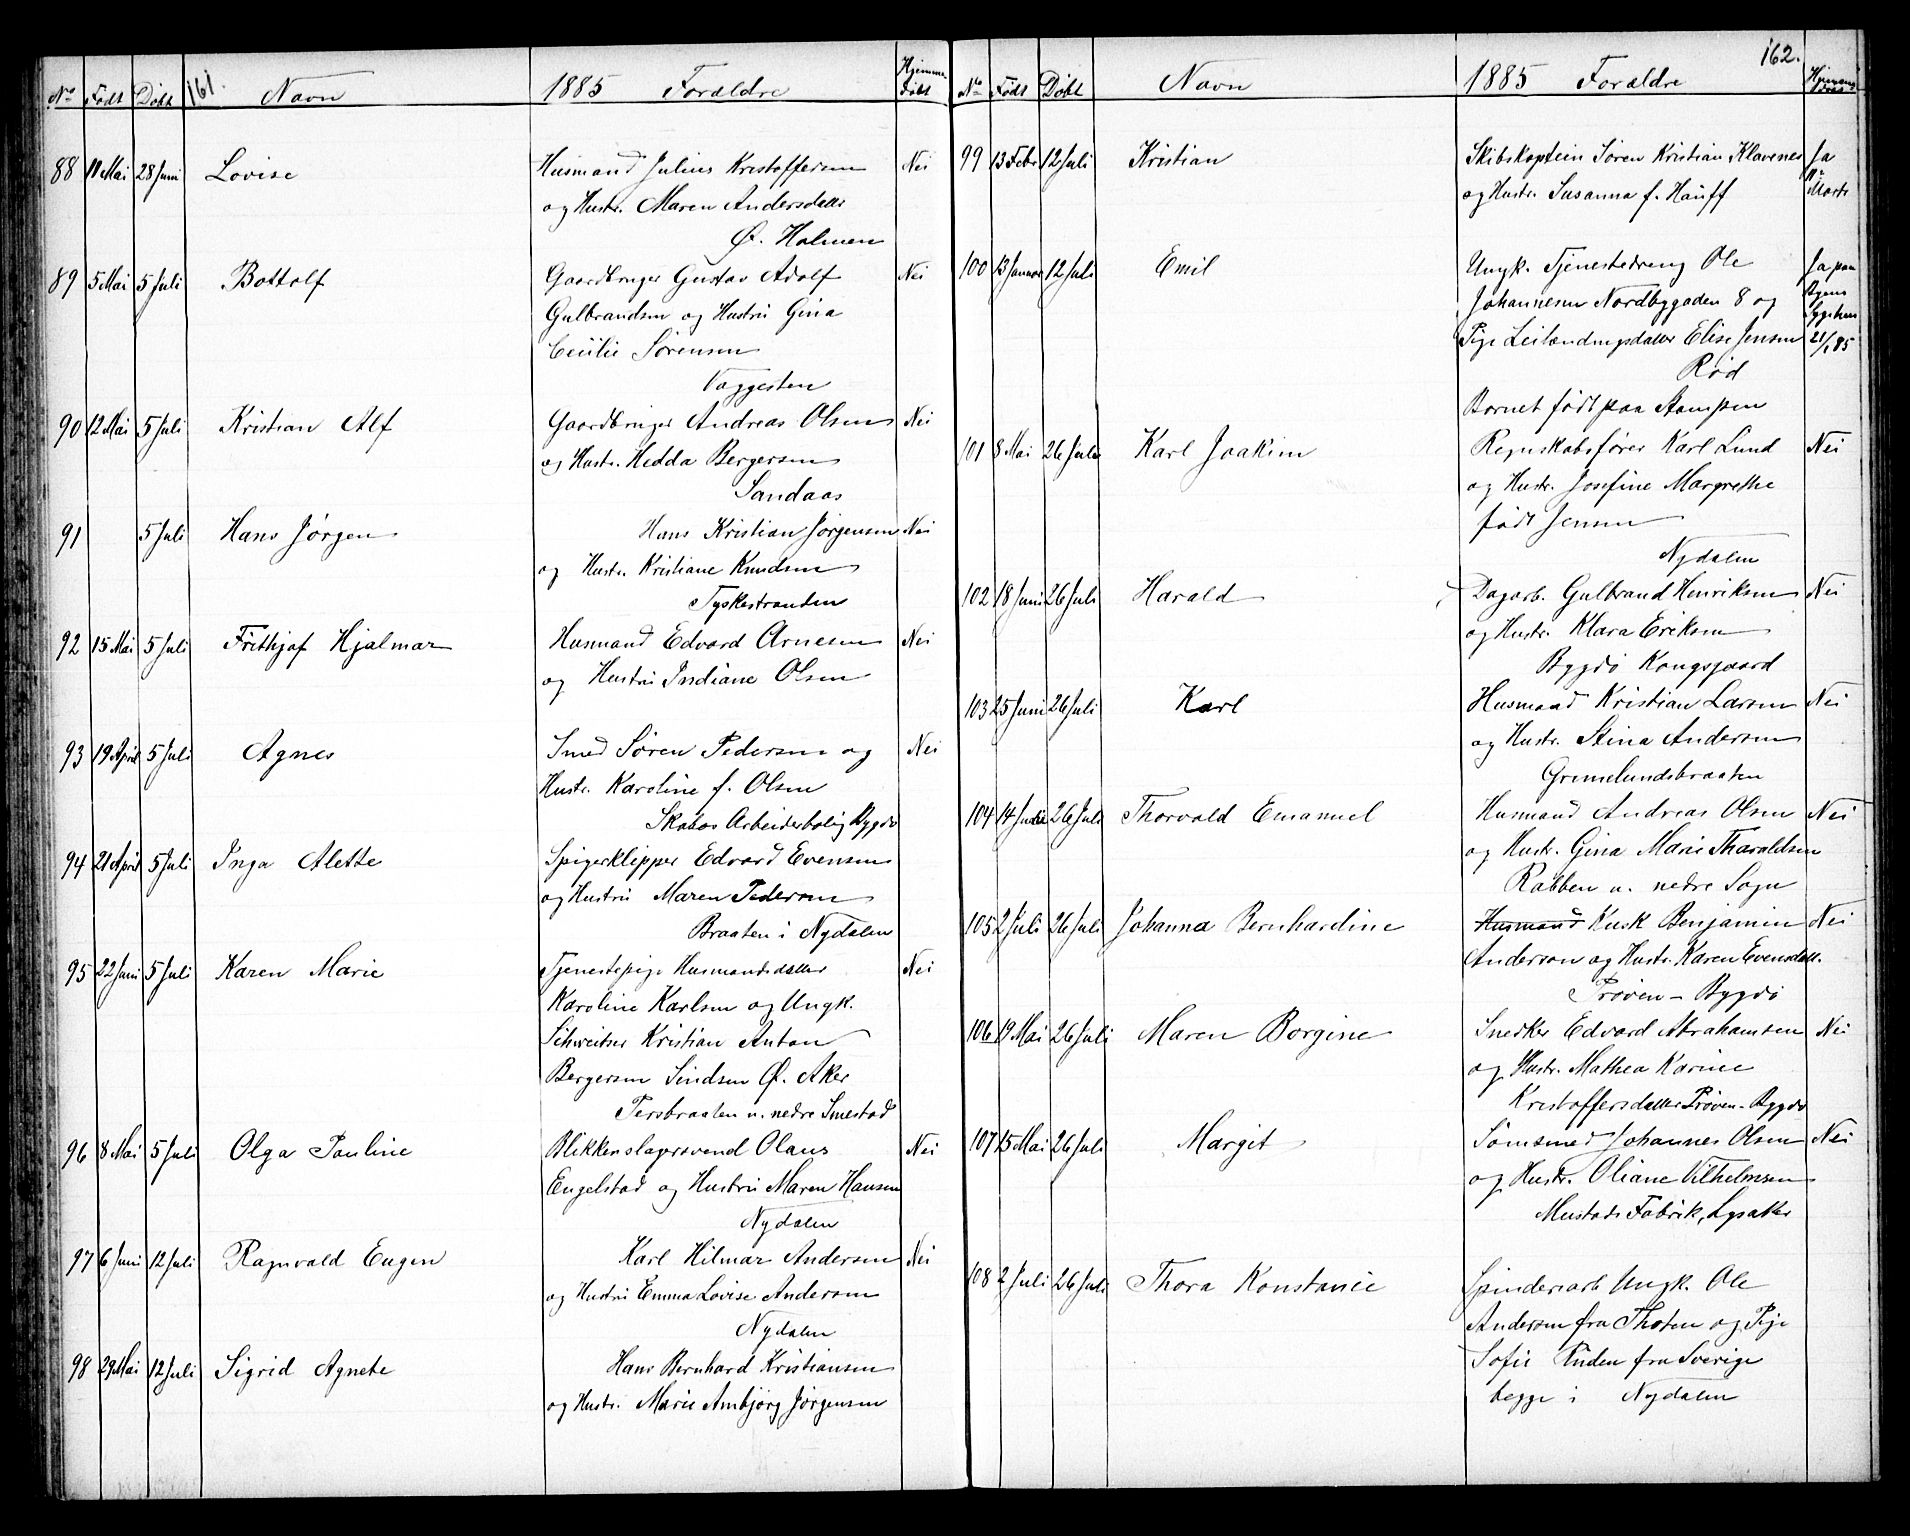 161.
No Født Døbt Navn 1885 Forældre Hjemmedøbt
88 11 Mai 28 Juni Lovise Husmand Julius Kristoffersen Nei
og Hustr. Maren Andersdatter
Ø. Holmen
89 5 Mai 5 Juli Bottolf Gaardbruger Gustav Adolf Nei
Gulbrandsen og Hustru Gina
Cecilie Sørensen
Vaggesten
90 12 Mai 5 Juli Kristian Alf Gaardbruger Andreas Olsen Nei
og Hustr. Hedda Bergersen
Sandaas
91 5 Juli Hans Jørgen Hans Kristian Jørgensen Nei
og Hustr. Kristiane Knudsen
Tyskestranden
92 15 Mai 5 Juli Frithjof Hjalmar Husmand Edvard Arnesen Nei
og Hustru Indiane Olsen
93 19 April 5 Juli Agnes Smed Søren Pedersen og Nei
Hustr. Karoline f. Olsen
Skabos Arbeiderbolig Bygdø
94 21 April 5 Juli Inga Alette Spigerklipper Edvard Evensen
og Hustru Maren Pedersen
Braaten i Nydalen
95 22 Juni 5 Juli Karen Marie Tjenestepige Husmandsdatter Nei
Karoline Karlsen og Ungk.
Schweitser Kristian Anton
Bergersen Sindsen Ø. Aker
Persbraaten u. nedre Smestad
96 8 Mai 5 Juli Olga Pauline Blikkenslagersvend Olaus Nei
Engelstad og Hustru Maren Hansen
Nydalen
97 6 Juni 12 Juli Ragnvald Eugen Karl Hilmar Andersen Nei
og Hustru Emma Lovise Andersen
Nydalen
98 29 Mai 12 Juli Sigrid Agnete Hans Bernhard Kristiansen
og Hustr. Marie Ambjørg Jørgensen
162.
No Født Døbt Navn 1885 Forældre Hjemmedøbt
99 13 Febr 12 Juli Kristian Skibskaptein Søren Kristian Klavenes Ja
og Hustr. Susanna f. Hauff Marts
100 13 Januar 12 Juli Emil Ungk. Tjenestedreng Ole Ja paa
Johannesen Nordbygaden 8 og Byens
Sygehus
Pige Leilændingsdatter Elise Jensen 21/1 85
Rød
Barnet født paa Stampen
101 8 Mai 26 Juli Karl Joakim Regnskabsfører Karl Lund Nei
og Hustr. Josefine Margrethe
født Jensen
Nydalen
102 18 Juni 26 Juli Harald Dagarb. Gulbrand Henriksen Nei
og Hustr. Klara Eriksen
Bygdø Kongsgaard
103 25 Juni 26 Juli Karl Husmand Kristian Larsen Nei
og Hustr. Stina Andersen
Grimelundsbraaten
104 14 Juni 26 Juli Thorvald Emanuel Husmand Andreas Olsen Nei
og Hustr. Gina Marie Tharaldsen
Rabben u. nedre Sogn
105 2 Juli 26 Juli Johanna Bernhardine Husmand Kusk Benjamin Nei
Anderson og Hustr. Karen Evensdatt.
Prøven - Bygdø
106 19 Mai 26 Juli Maren Borgine Snedker Edvard Abrahamsen Nei
og Hustr. Mathea Karine
Kristoffersdatter Prøven - Bygdø
107 15 Mai 26 Juli Margit Sømsmed Johannes Olsen Nei
og Hustr. Oliane Vilhelmsen
Mustads Fabrik, Lysaker
108 2 Juli 26 Juli Thora Konstanse Spinderiarb Ungk. Ole
Andersen fra Thoten og Pige
Sofie Linden fra Sverige
begge i Nydalen